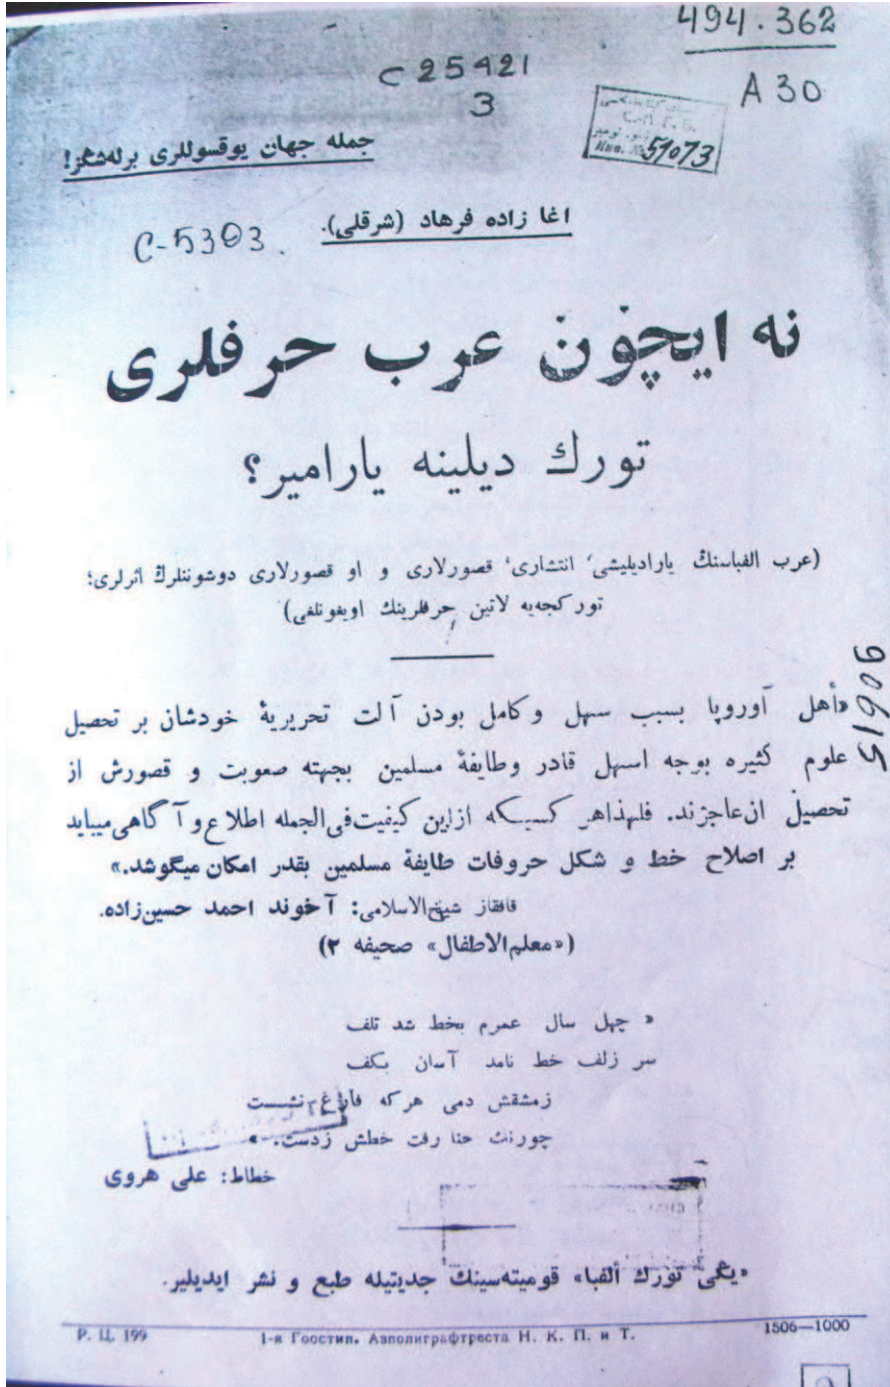 494.362
C 25421
3
A 30
Инв. № 51073
جمله جهان یوقسوللری برله‌شڭز!
اغا زاده فرهاد (شرقلی).
C-5303
نه ایچون عرب حرفلری
تورك دیلینه یارامیر؟
(عرب الفباسنڭ یارادیلیشی، انتشاری، قصورلاری و او قصورلاری دوشوننلرڭ اثرلری؛
تورکجه‌یه لاتین حرفلرینڭ اویغونلغی)
51906
«أهل آوروپا بسبب سهل و کامل بودن آلت تحریریهٔ خودشان بر تحصیل
علوم کثیره بوجه اسهل قادر وطایفهٔ مسلمین بجهته صعوبت و قصورش از
تحصیل ان عاجزند. فلهذا هر کسیکه از این کیفیت فی‌الجمله اطلاع و آگاهی میباید
بر اصلاح خط و شکل حروفات طایفهٔ مسلمین بقدر امکان میگوشد.»
قافقاز شیخ‌الاسلامی: آخوند احمد حسین‌زاده.
(«معلم‌الاطفال» صحیفه ۲)
« چهل سال عمرم بخط شد تلف
سر زلف خط نامد آسان بکف
زمشقش دمی هرکه فارغ نشست
چورنك حنا رفت خطش زدست. »
خطاط: علی هروی
«یڭی تورك الفبا» قومیته‌سینڭ جدیتیله طبع و نشر ایدیلیر.
Р. Ц. 199 1-я Гостип. Азполиграфтреста Н. К. П. и Т. 1506—1000